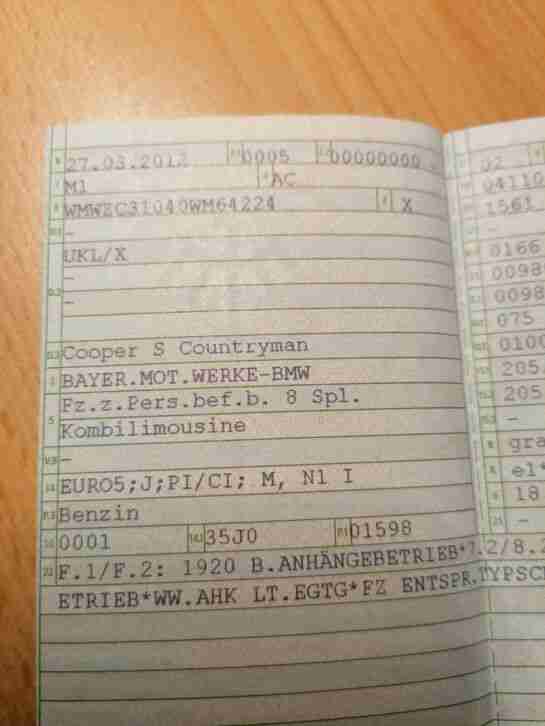 27.03.2012 0005 00000000 -
M1 AC
WMWZC31040WM64224 X
-
UKL/X
-
-
Cooper S Countryman
BAYER.MOT.WERKE-BMW
Fz.z.Pers.bef.b. 8 Spl.
Kombilimousine
-
EURO5;J;PI/CI; M, N1 I
Benzin
0001 35J0 01598
F.1/F.2: 1920 B.ANHÄNGEBETRIEB*7.2/8.2
ETRIEB*WW.AHK LT.EGTG*FZ ENTSPR.TYPSC
02
04110
1561
-
0166
0098
0098
075
0100
205
205
-
gra
e1*
18
-